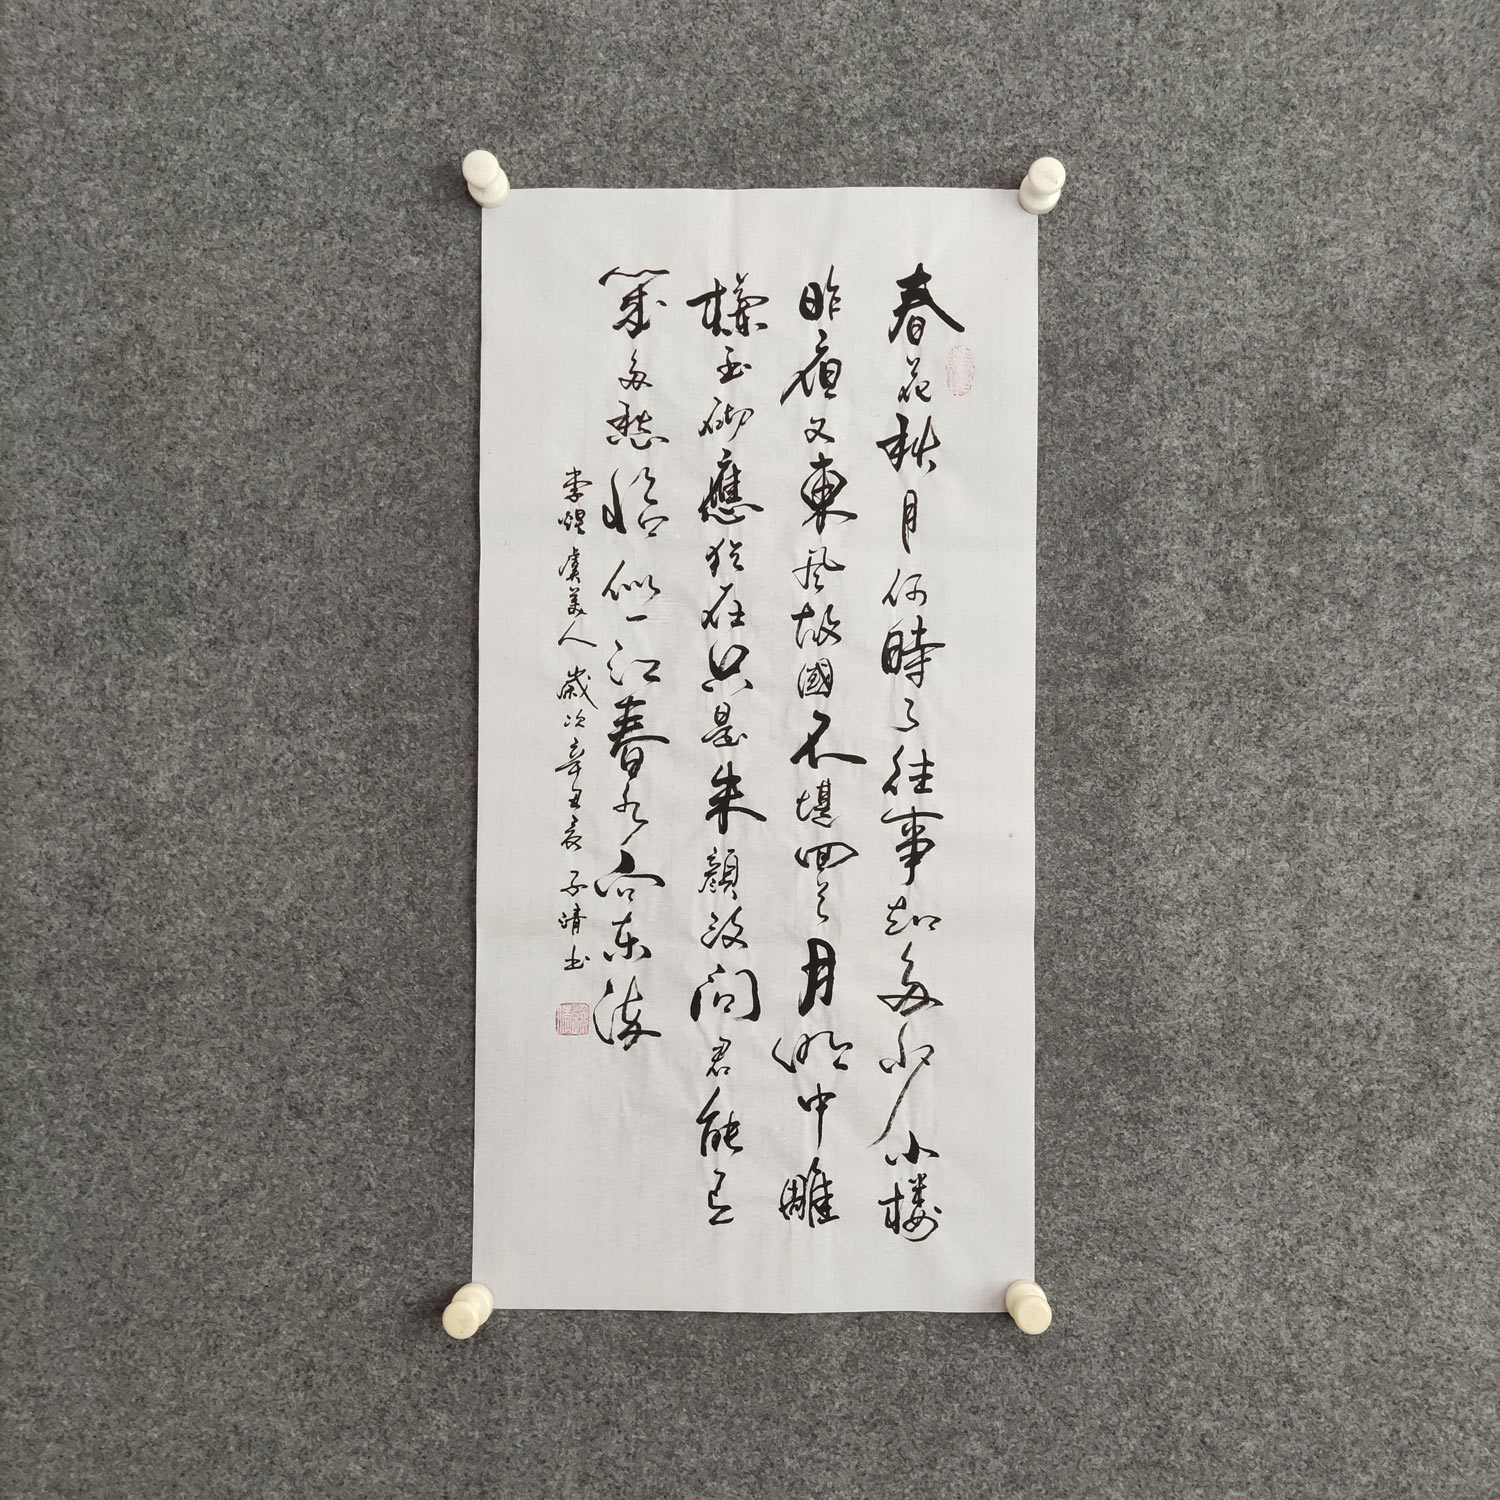 春花秋月何時了往事知多少小楼
昨夜又東風故國不堪回首月明中雕
欄玉砌應猶在只是朱顔改問君能有
幾多愁恰似一江春水向东流
李煜虞美人歲次辛丑夏子清书